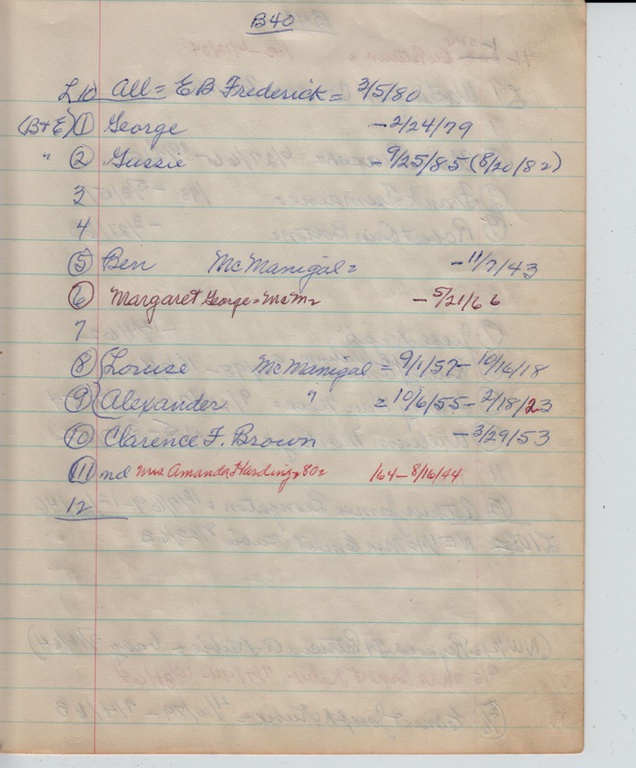 B40
L10 All = E B Frederick = 3/5/80
(B+E) ① George - 2/24/79
" ② Gussie - 9/25/85 (8/20/82)
3
4
⑤ Ben McManigal = - 11/7/43
⑥ Margaret George = McM= - 5/21/66
7
⑧ Louise McManigal = 9/1/57 - 10/16/18
⑨ Alexander " = 10/6/55 - 2/18/23
⑩ Clarence F. Brown - 3/29/53
⑪ md Mrs Amanda Harding 80= /64 - 8/16/44
12